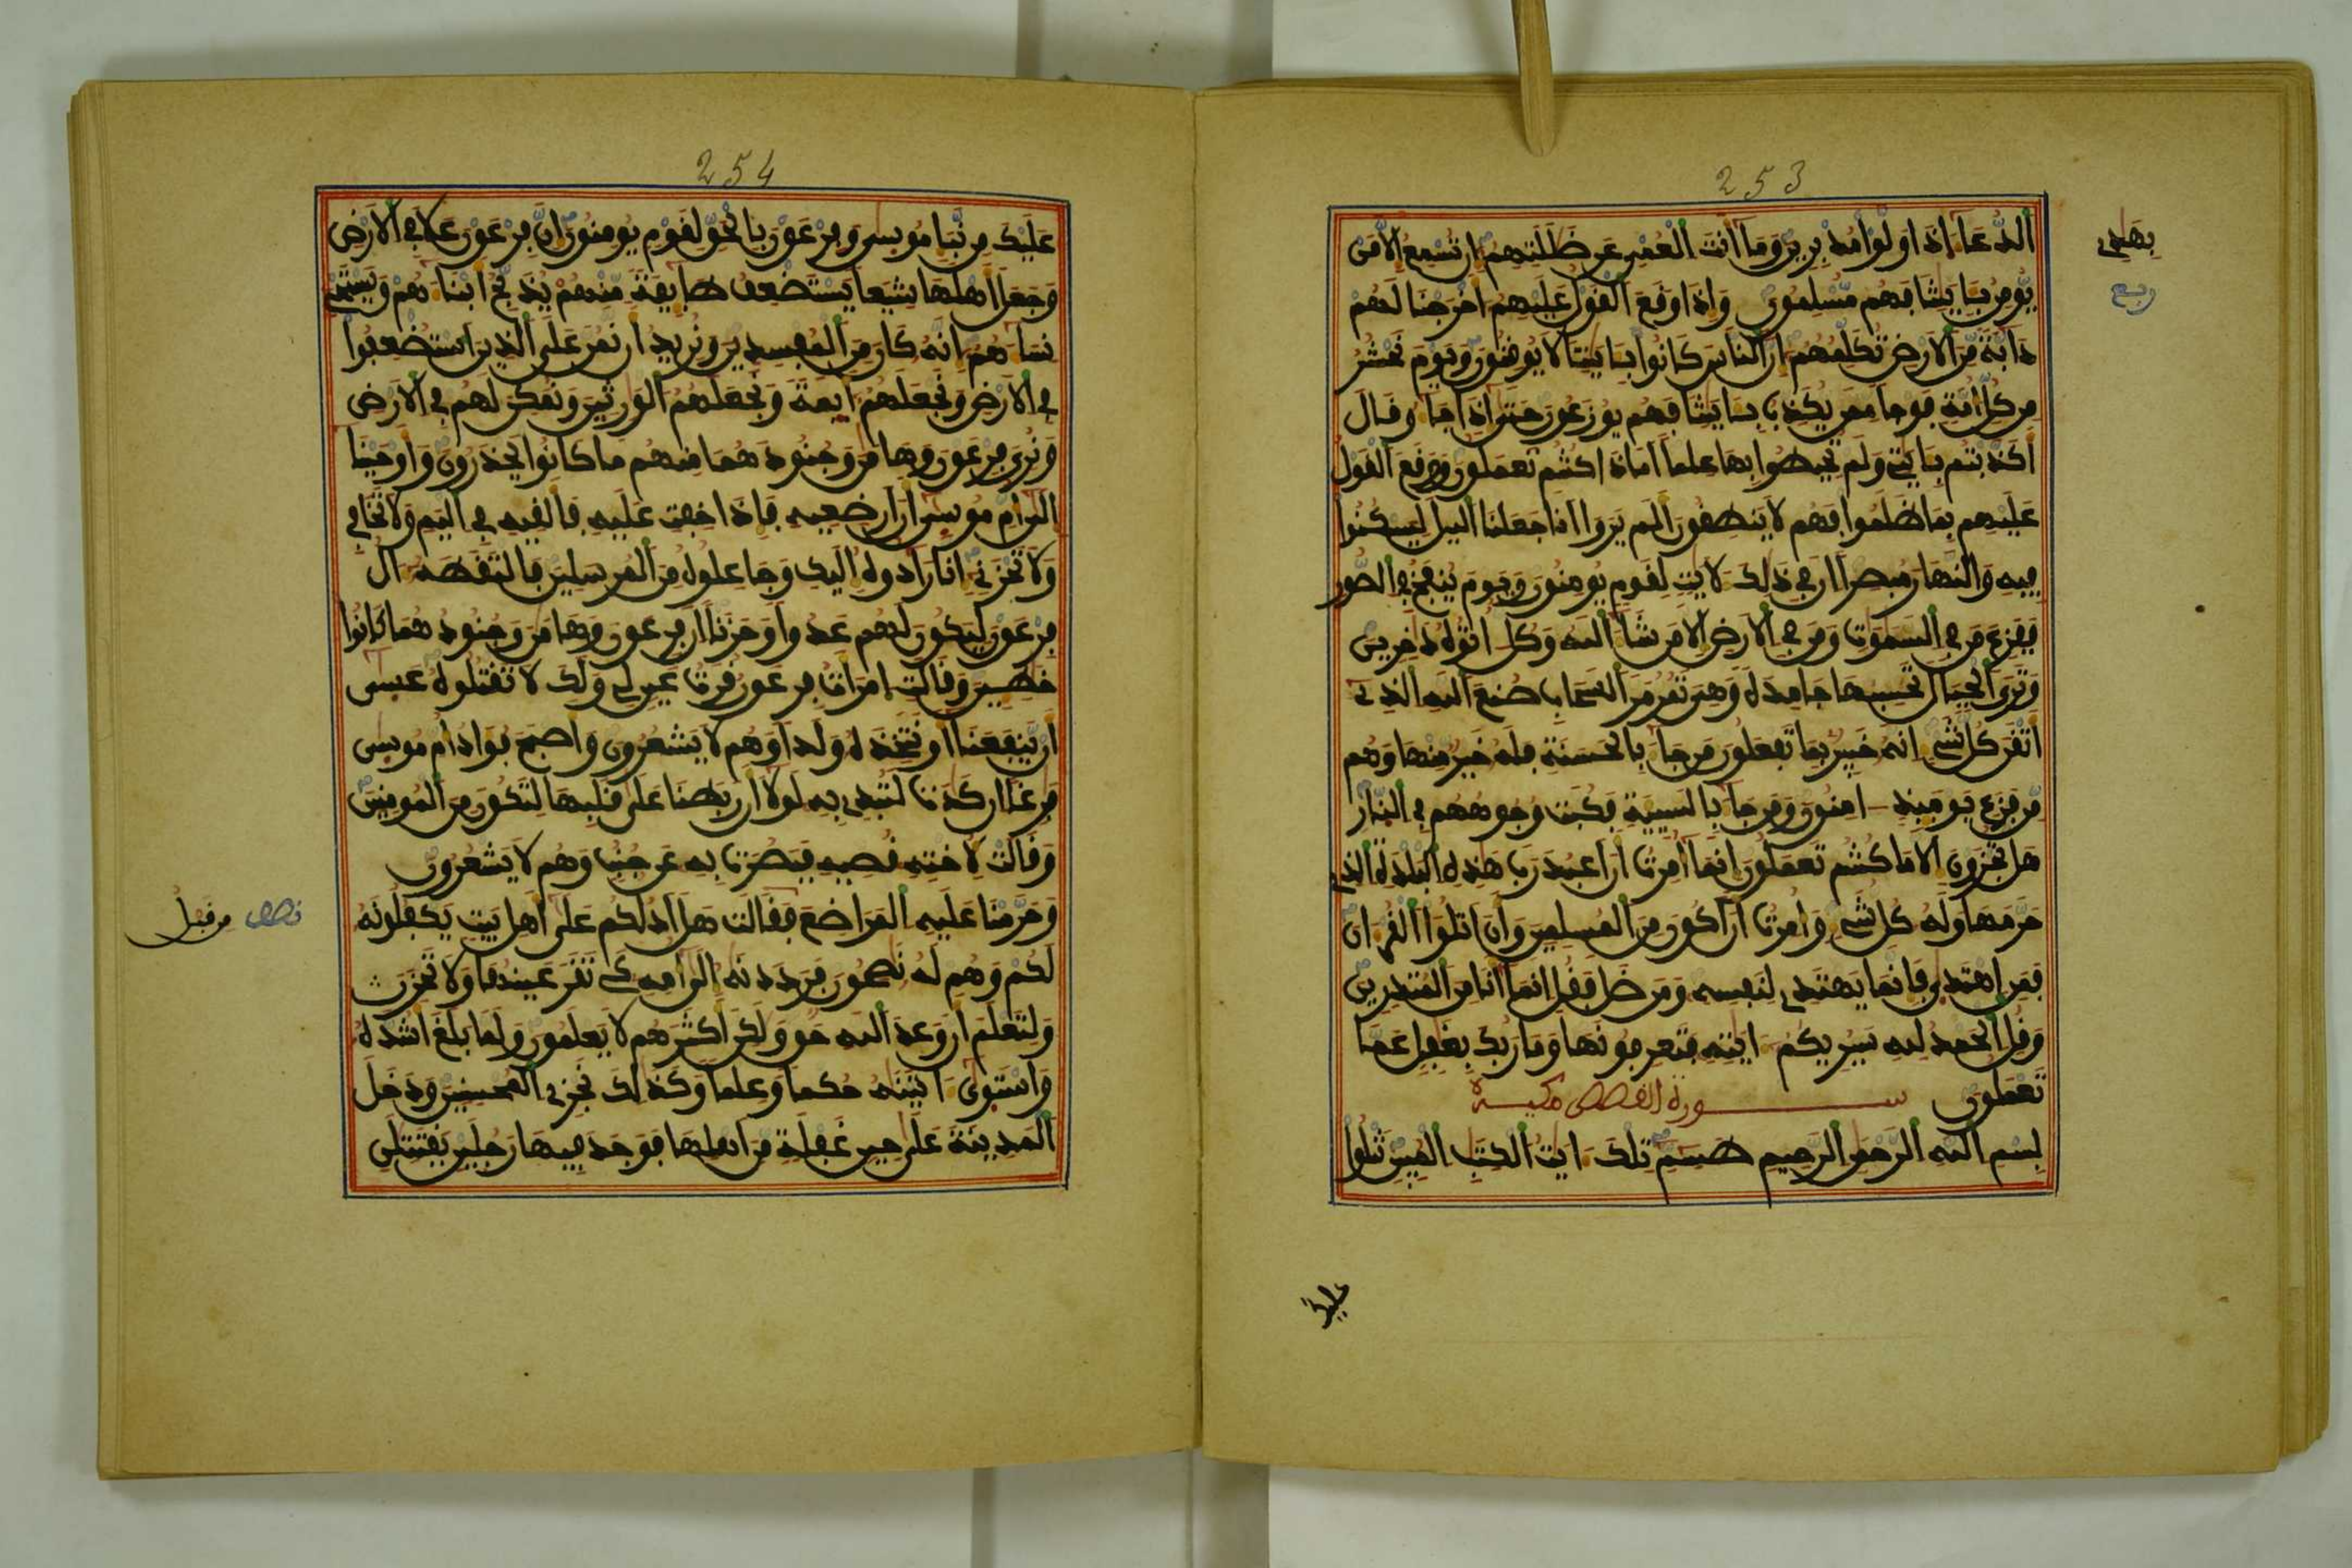 253
الدعاء اذا ولوا مدبرين وما انت بهدى العمى عن ضللتهم ان تسمع الا من
بهدى
ربع
يومن بـايتنا فهم مسلمون واذا وقع القول عليهم اخرجنا لهم
دابة من الارض تكلمهم ان الناس كانوا بـايتنا لا يوقنون ويوم نحشر
من كل امة فوجا ممن يكذب بـايتنا فهم يوزعون حتى اذا جاءو قال
اكذبتم بـايتى ولم تحيطوا بها علما اماذا كنتم تعملون ووقع القول
عليهم بما ظلموا فهم لا ينطقون الم يروا انا جعلنا اليل ليسكنوا
فيه والنهار مبصرا ان فى ذلك لايت لقوم يومنون ويوم ينفخ فى الصور
ففزع من فى السموت ومن فى الارض الا من شاء الله وكل اتوه دخرين
وترى الجبال تحسبها جامدة وهى تمر مر السحاب صنع الله الذى
اتقن كل شىء انه خبير بما تفعلون من جاء بالحسنة فله خير منها وهم
من فزع يوميذ امنون ومن جاء بالسيية فكبت وجوههم فى النار
هل تجزون الا ما كنتم تعملون انما امرت ان اعبد رب هذه البلدة الذى
حرمها وله كل شىء وامرت ان اكون من المسلمين وان اتلوا القرءان
فمن اهتدى فانما يهتدى لنفسه ومن ضل فقل انما انا من المنذرين
وقل الحمد لله سيريكم ءايته فتعرفونها وما ربك بغفل عما
تعملون سورة القصص مكية
بسم الله الرحمن الرحيم طسم تلك ءايت الكتب المبين نتلوا
عليك
254
عليك من نبإ موسى وفرعون بالحق لقوم يومنون ان فرعون علا فى الارض
وجعل اهلها شيعا يستضعف طايفة منهم يذبح ابناءهم ويستحى
نساءهم انه كان من المفسدين ونريد ان نمن على الذين استضعفوا
فى الارض ونجعلهم ايمة ونجعلهم الورثين ونمكن لهم فى الارض
ونرى فرعون وهامن وجنودهما منهم ما كانوا يحذرون واوحينا
الى ام موسى ان ارضعيه فاذا خفت عليه فالقيه فى اليم ولا تخافى
ولا تحزنى انا رادوه اليك وجاعلوه من المرسلين فالتقطه ءال
فرعون ليكون لهم عدوا وحزنا ان فرعون وهامن وجنودهما كانوا
خطـين وقالت امرات فرعون قرت عين لى ولك لا تقتلوه عسى
ان ينفعنا او نتخذه ولدا وهم لا يشعرون واصبح فواد ام موسى
فرغا ان كادت لتبدى به لولا ان ربطنا على قلبها لتكون من المومنين
وقالت لاخته قصيه فبصرت به عن جنب وهم لا يشعرون
وحرمنا عليه المراضع من قبل فقالت هل ادلكم على اهل بيت يكفلونه
نصف
من قبل
لكم وهم له نصحون فرددنه الى امه كى تقر عينها ولا تحزن
ولتعلم ان وعد الله حق ولكن اكثرهم لا يعلمون ولما بلغ اشده
واستوى ءاتينه حكما وعلما وكذلك نجزى المحسنين ودخل
المدينة على حين غفلة من اهلها فوجد فيها رجلين يقتتلن